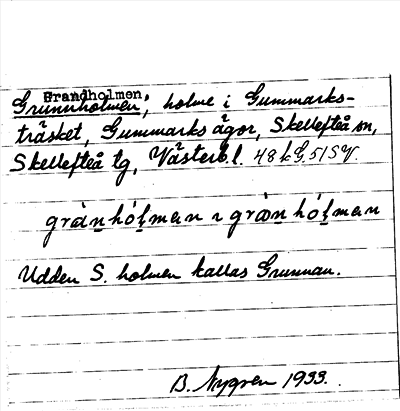 Brandholmen,
Grunnholmen, holme i Gummarks-
träsket, Gummarks ägor, Skellefteå sn,
Skellefteå tg, Västerb. l. 48 k G, 51 SV.
Udden S. holmen kallas Grunnan.
B. Nygren 1933.